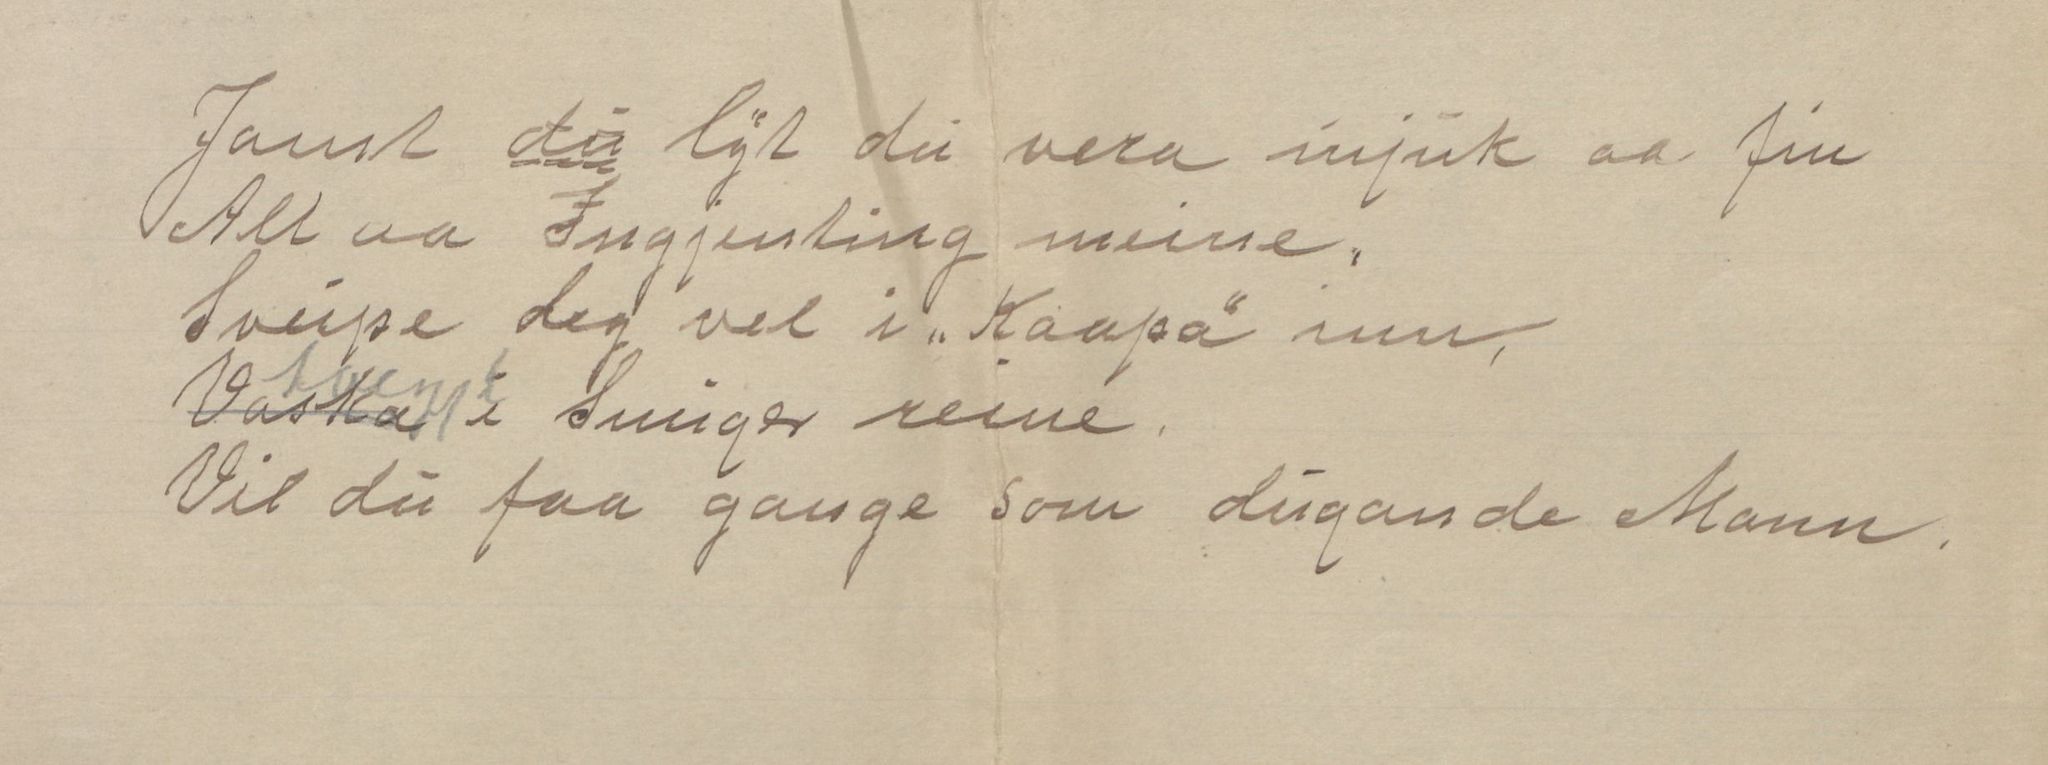 Jamst du lyt du vera mjuk aa fin
Alt aa Ingjenting meine.
Sveipe deg vel i „Kaapa“ inn,
Vaska i Sniger reine.
Vil du faa gange som dugande Mann.